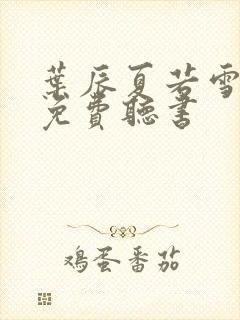 葉辰夏若雪
免費聽書
鸡蛋番茄